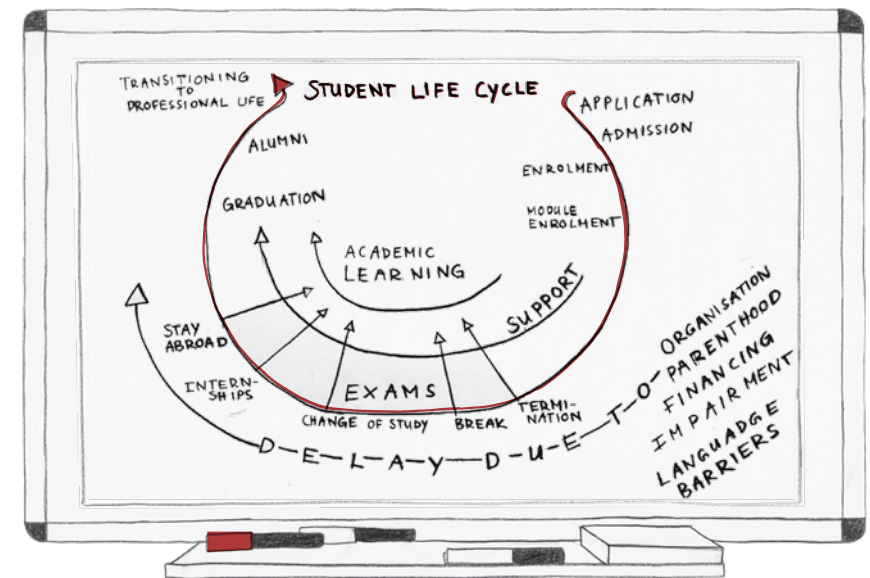 TRANSITIONING
TO
PROFESSIONAL LIFE
STUDENT LIFE CYCLE
APPLICATION
ADMISSION
ENROLMENT
MODULE
ENROLMENT
ALUMNI
GRADUATION
ACADEMIC
LEARNING
SUPPORT
STAY
ABROAD
INTERN-
SHIPS
EXAMS
CHANGE OF STUDY
BREAK
TERMI-
NATION
D-E-L-A-Y-D-U-E-T-O-
ORGANISATION
PARENTHOOD
FINANCING
IMPAIRMENT
LANGUADGE
BARRIERS